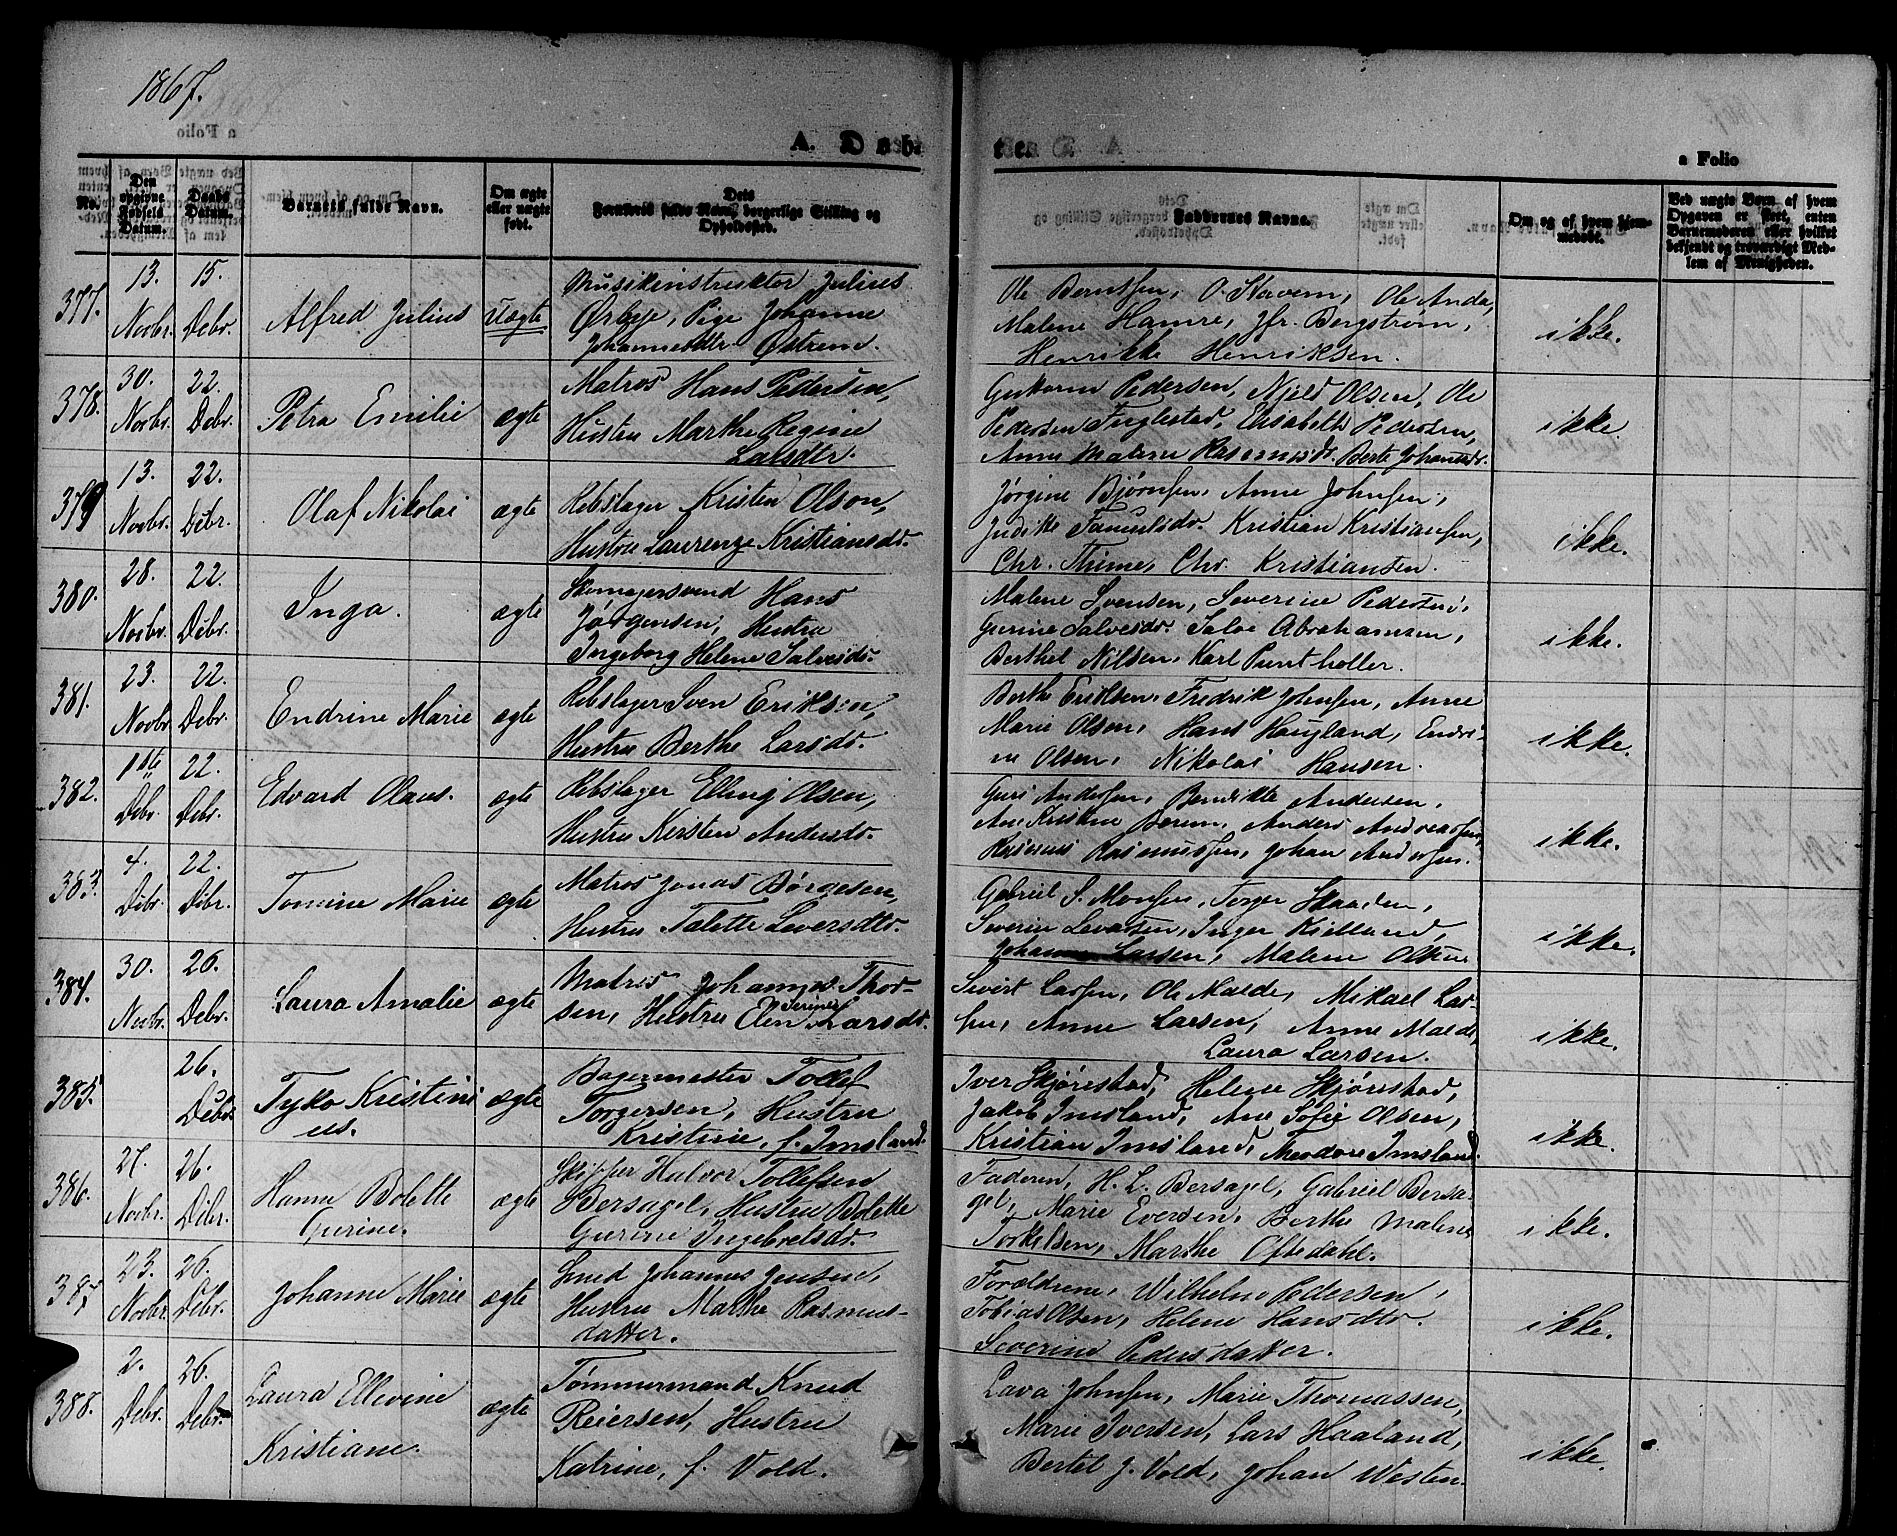 1867.
A. Døbte
a Folio
No.
Den opgivne Fødsels Datum.
Daabs Datum.
Barnets fulde Navn.
Om ægte eller uægte født.
Dets Forældres fulde Navn, borgerlige Stilling og Opholdssted.
Faddernes Navne.
Om og af hvem hjemmedøbt.
Ved uægte Børn af hvem Opgaven er skeet, enten Barnemoderen eller hvilket bekjendt og troværdigt Medlem af Menigheden.
377. 13. Novbr. 15. Debr. Alfred Julius Uægte
Musikinstruktør Julius
Ørbye, Pige Johanne
Johannesdtr. Østrem.
Ole Berntsen, O. Stavem, Ole Anda,
Malene Hamre, Jfr. Bergstrøm,
Henrikke Henriksen.
ikke.
378. 30. Novbr. 22. Debr. Petra Emilie ægte
Matros Hans Pedersen,
Hustru Marthe Regine
Larsdtr.
Gutorm Pedersen, Njeld Olsen, Ole
Pedersen Fuglestad, Elisabeth Pedersen,
Anne Malene Rasmusdr. Berte Johannesdr.
ikke.
379 13. Novbr. 22. Debr. Olaf Nikolai ægte
Rebslager Kristen Olson,
Hustru Laurenze Kristiansdr.
Jørgine Bjørnsen, Anne Johnsen,
Judikke Samuelsdr. Kristian Kristiansen,
Chr. Thime, Chr. Kristiansen.
ikke.
380. 28. Novbr. 22. Debr. Inga. ægte
Skomagersvend Hans
Jørgensen, Hustru
Ingeborg Helene Salvesdr.
Malene Svensen, Severine Pedersen,
Gurine Salvesdr. Salve Abrahamsen,
Berthel Nilsen, Karl Puntholler.
ikke.
381. 23. Novbr. 22. Debr. Endrine Marie ægte
Rebslager Sven Eriksen,
Hustru Berthe Larsdr.
Berthe Eriksen, Fredrik Johnsen, Anne
Marie Olsen, Hans Haugland, Endri-
ne Olsen, Nikolai Hansen.
ikke.
382. 1ste Debr. 22. Debr. Edvard Olaus. ægte
Rebslager Elling Olsen,
Hustru Kirsten Andersdr.
Guri Andersen, Bendikte Andersen,
Ane Kristine Berem, Anders Andreassen,
Rasmus Rasmussen, Johan Andersen.
ikke.
383. 4. Debr. 22. Debr. Tomine Marie ægte
Matros Jonas Børgesen,
Hustru TaletteSeversdtr.
Gabriel S. Monsen, Torger Skaaden,
Severin Levardsen, Inger Kielland,
Larsen, Malene Olsen
ikke.
384. 30. Novbr. 26. Debr. Laura Amalie ægte
Matros Johannes Thor-
sen, Hustru Elen Serine Larsdr.
Sivert Larsen, Ole Malde, Mikael Lar-
sen, Anne Larsen, Anne Malde,
Laura Larsen.
ikke.
385. 26. Debr. Tyko Kristini
us. ægte
Bagermester Tollef
Torgersen, Hustru
Kristine, f. Imsland.
Iver Skjørestad, Helene Skjørestad,
Jakob Imsland, Ane Sofie Olsen,
Kristian Imsland, Theodore Imsland.
ikke
386. 27. Novbr. 26. Debr. Hanna Bolette
Gurine. ægte
Skipper Halvor Tollefsen
Bersagel, Hustru Bolette
Gurine Ingebretsdr.
Faderen, H. L. Bersagel, Gabriel Bersa-
gel, Marie Eversen, Berthe Malene
Torkelsen, Marthe Oftedahl.
ikke.
387 23. Novbr. 26. Debr. Johanne Marie ægte
Smed Johannes Jensen,
Hustru Marthe Rasmus-
datter.
Forældrene, Wilhelm Pedersen,
Tobias Olsen, Helene Hansdtr.
Severine Pedersdatter.
ikke.
388. 2. Debr. 26. Debr. Laura Ellevine
Kristiane. ægte
Tømmermand Knud
Reiersen, Hustru
Katrine, f. Vold.
Lava Johnsen, Marie Thomassen,
Marie Iversen, Lars Haaland,
Bertel J. Vold, Johan Westen.
ikke.